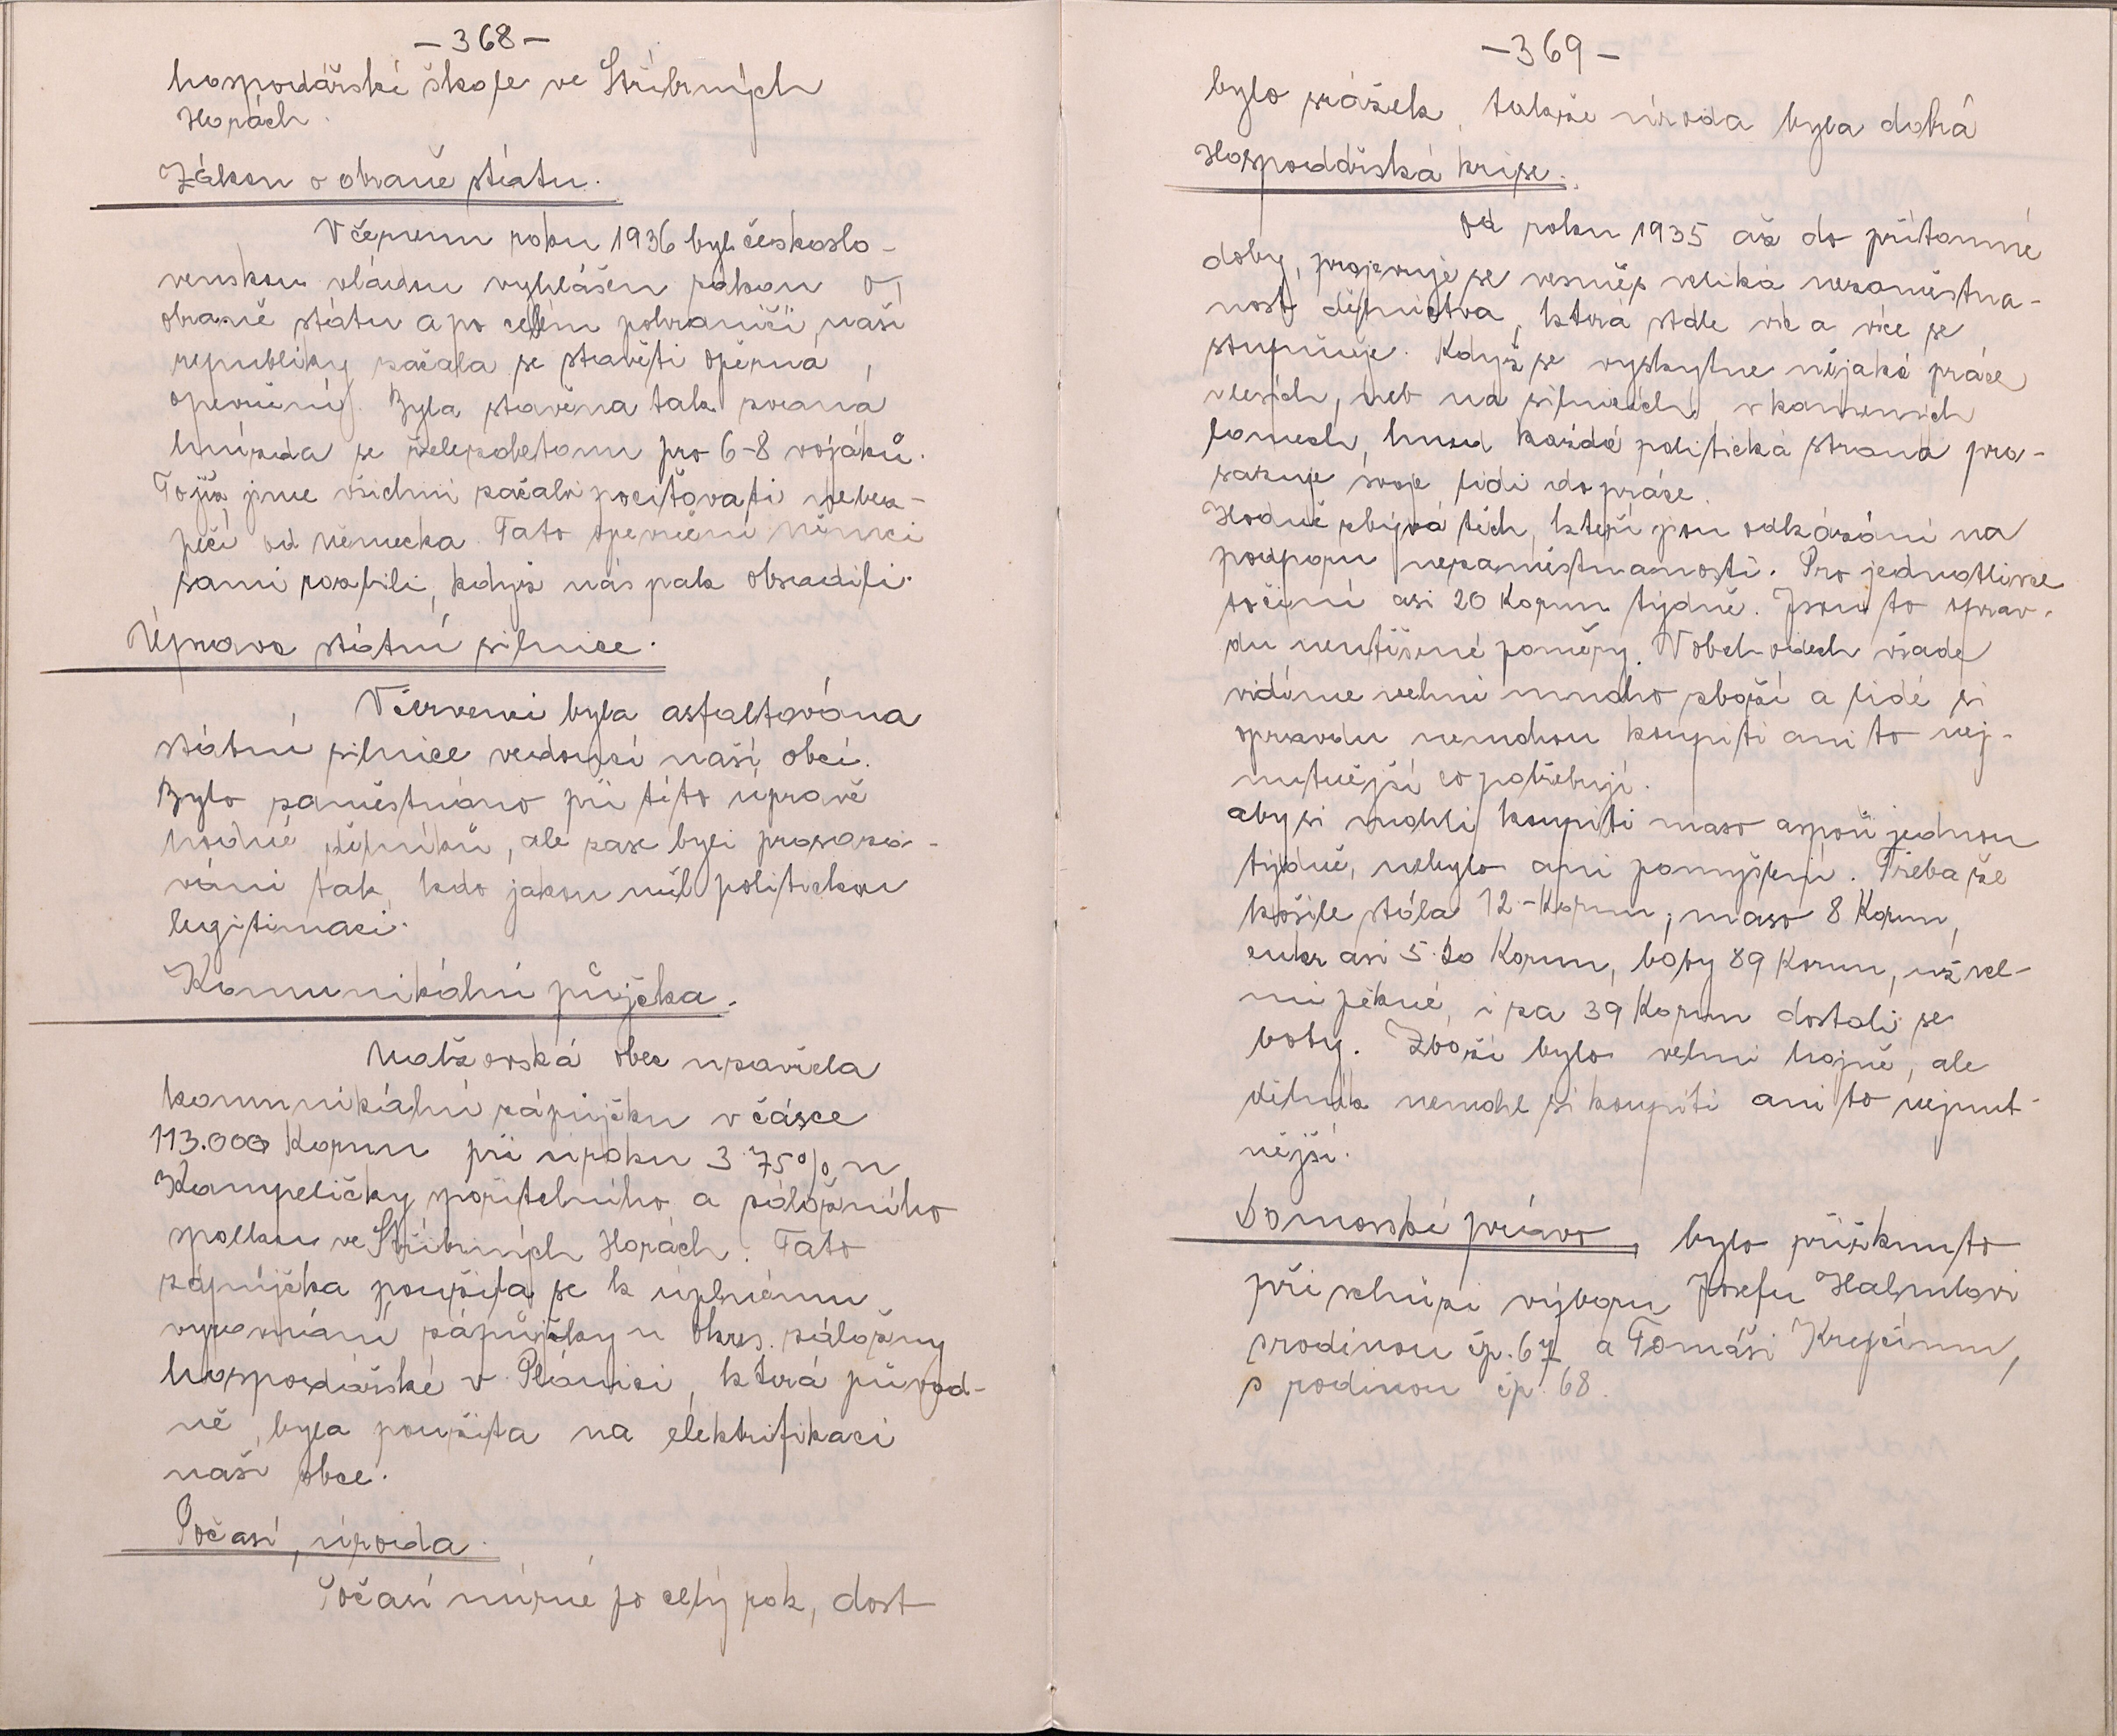 -368-
hospodářské škole ve Stříbrných
Horách.
Zákon o obraně státu.
V červnu roku 1936 byl českoslo-
venskou vládou vyhlášen zákon o
obraně státu a po celém pohraničí naší
republiky začala se stavěti opěrná
opevnění. Byla stavěna tak zvaná
hnízda se železobetonu pro 6-8 vojáků.
To již jsme všichni začali pociťovati nebez-
pečí od Německa. Tato opevnění Němci
sami rozbili, když nás pak obsadili.
Úprava státní silnice.
V červenci byla asfaltována
státní silnice vedoucí naší obcí.
Bylo zaměstnáno při této úpravě
hodně dělníků, ale zase byli prosazo-
váni tak, kdo jakou měl politickou
legitimaci.
Komunikální půjčka.
Natžovská obec uzavřela
komunikální zápůjčku v částce
113.000 Korun při úroku 3.75% u
Kampeličky spořitelního a záložního
spolku ve Stříbrných Horách. Tato
zápůjčka použita se k úplnému
vyrovnání zápůjčky u Okres. záložny
hospodářské v Plánici, která původ-
ně byla použita na elektrifikaci
naší obce.
Počasí, úroda.
Počasí mírné po celý rok, dost
-369-
bylo srážek, takže úroda byla dobrá
Hospodářská krise.
Od roku 1935 až do přítomné
doby, projevuje se vesměs veliká nezaměstna-
nost dělnictva, která stále víc a více se
stupňuje. Když se vyskytne nějaké práce
v lesích, neb na silnicích, v kamenných
lomech, hned každá politická strana pro-
sazuje svoje lidi do práce.
Hodně zbývá těch, kteří jsou odkázáni na
podporu nezaměstnanosti. Pro jednotlivce
to činí asi 20 Korun týdně. Jsou to oprav-
du neutěšené poměry. V obchodech všade
vidíme velmi mnoho zboží a lidé si
opravdu nemohou koupiti ani to nej-
nutnější co potřebují.
aby si mohli koupiti maso aspoň jednou
týdně, nebylo ani pomyšlení. Třeba že
košile stála 12 - Korun, maso 8 Korun,
cukr asi 5.20 Korun, boty 89 Korun, už vel-
mi pěkné, i za 39 Korun dostali se
boty. Zboží bylo velmi hojně, ale
dělník nemohl si koupiti ani to nejnut-
nější.
Domovské právo, bylo přiřknuto
při schůzi výboru Josefu Halmlovi
s rodinou čp. 67 a Tomáši Krejčímu,
s rodinou čp. 68.